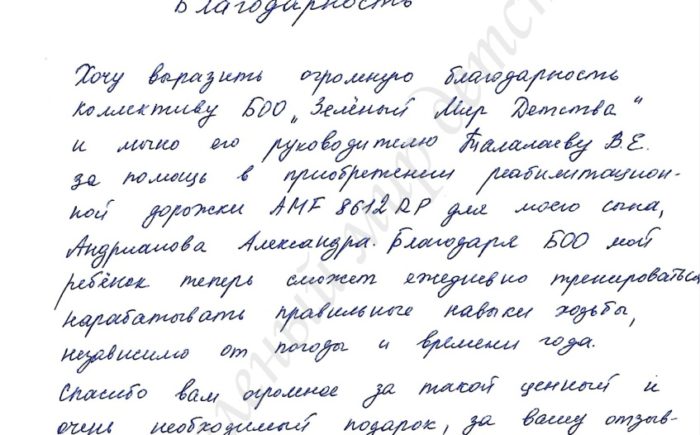 Благодарность
Хочу выразить огромную благодарность
коллективу БОО „Зелёный Мир Детства“
и лично его руководителю Талалаеву В.Е.
за помощь в приобретении реабилитацион-
ной дорожки AMF 8612 RP для моего сына,
Андрианова Александра. Благодаря БОО мой
ребёнок теперь сможет ежедневно тренироваться,
нарабатывать правильные навыки ходьбы,
независимо от погоды и времени года.
Спасибо вам огромное за такой ценный и
очень необходимый подарок, за вашу отзыв-
леный мир детст